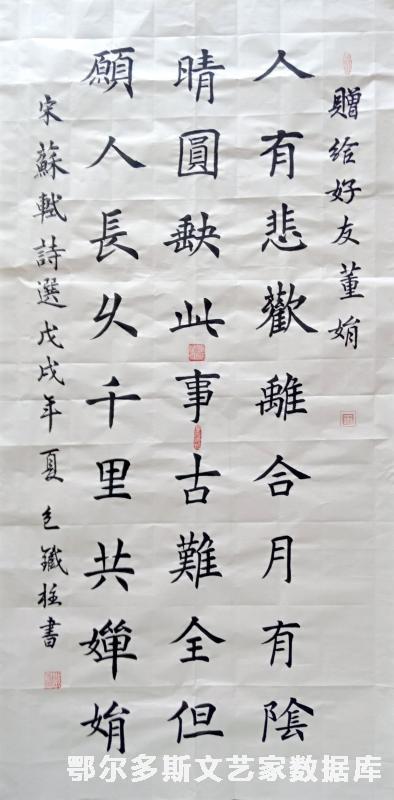 贈给好友董娟
人有悲歡離合月有陰
晴圓缺此事古難全但
願人長久千里共嬋娟
宋蘇軾詩選戊戌年夏包鐵柱書
鄂尔多斯文艺家数据库